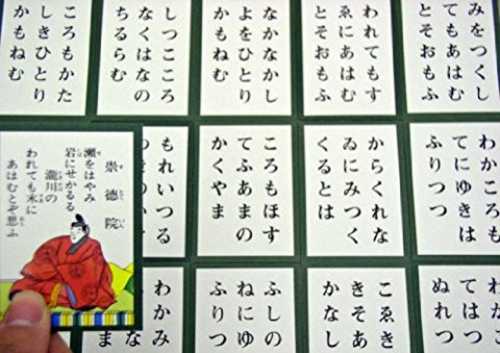 みをつくし
てもあはむ
とそおもふ
われてもす
ゑにあはむ
とそおもふ
なかなかし
よをひとり
かもねむ
しつこころ
なくはなの
ちるらむ
ころもかた
しきひとり
かもねむ
わかころも
てにゆきは
ふりつつ
からくれな
ゐにみつく
くるとは
ころもほす
てふあまの
かくやま
もれいつる
崇徳院
瀬をはやみ
岩にせかるる
瀧川の
われても末に
あはむとぞ思ふ
わか
てはつ
ぬれつ
こゑき
きそあ
ふしの
ねにゆ
ふりつ
わかみ